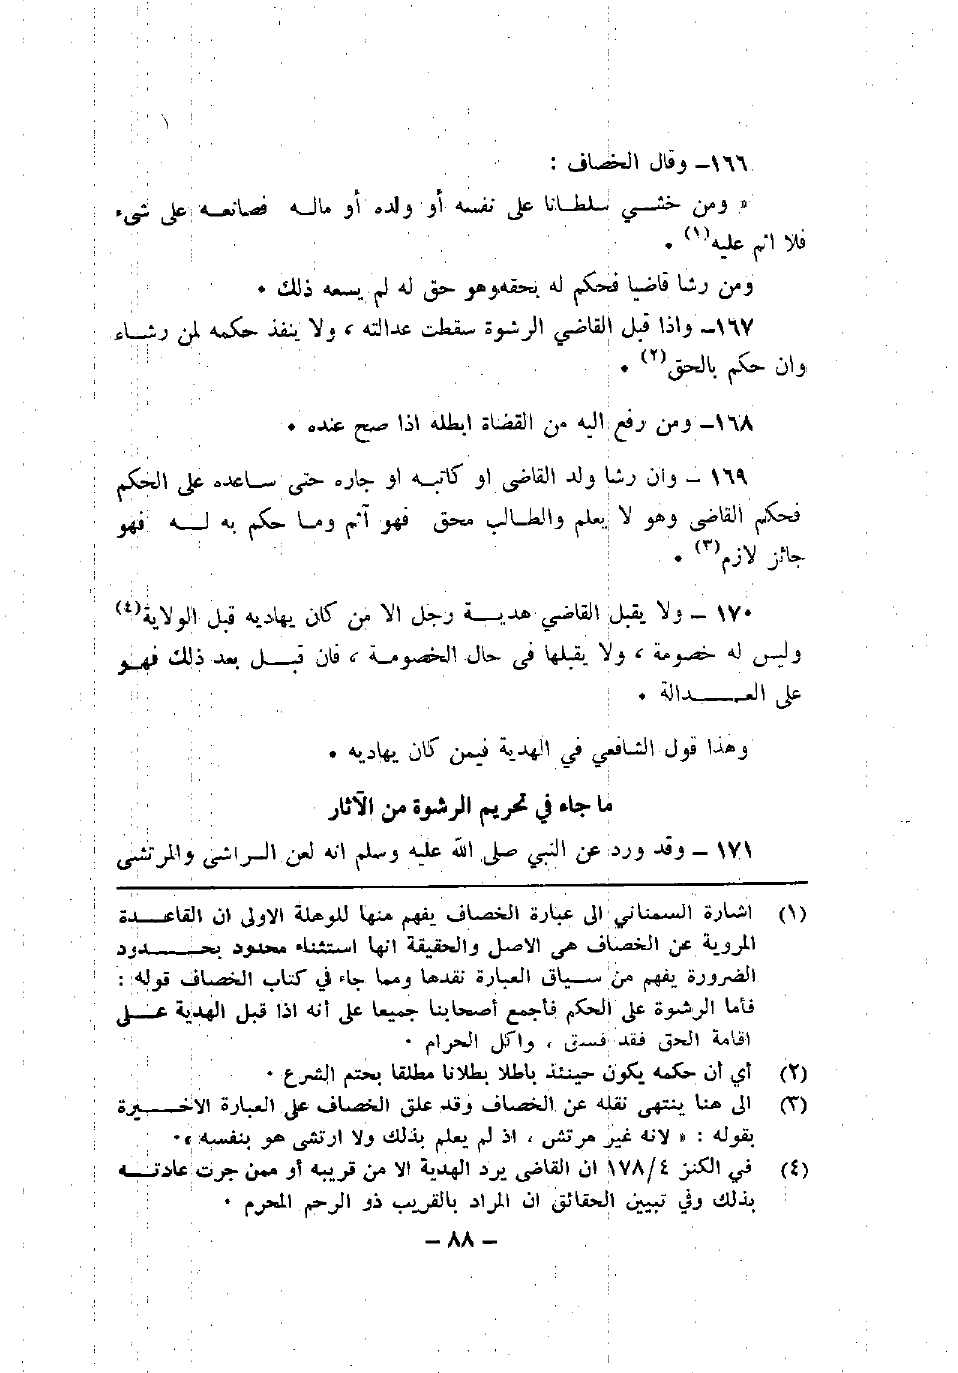 ١٦٦ـ وقال الخصاف :
« ومن خشي سلطانا على نفسه أو ولده أو ماله فصانعه على شيء
فلا اثم عليه(١) ٠
ومن رشا قاضيا فحكم له بحقه وهو حق له لم يسعه ذلك ٠
١٦٧ـ واذا قبل القاضي الرشوة سقطت عدالته ، ولا ينفذ حكمه لمن رشاء
وان حكم بالحق(٢) ٠
١٦٨ـ ومن رفع اليه من القضاة ابطله اذا صح عنده ٠
١٦٩ ـ وان رشا ولد القاضى او كاتبه او جاره حتى ساعده على الحكم
فحكم القاضى وهو لا يعلم والطالب محق فهو آثم وما حكم به له فهو
جائز لازم(٣) ٠
١٧٠ ـ ولا يقبل القاضي هدية رجل الا من كان يهاديه قبل الولاية(٤)
وليس له خصومة ، ولا يقبلها فى حال الخصومة ، فان قبل بعد ذلك فهو
على العدالة ٠
وهذا قول الشافعي في الهدية فيمن كان يهاديه ٠
ما جاء في تحريم الرشوة من الآثار
١٧١ ـ وقد ورد عن النبي صلى الله عليه وسلم انه لعن الراشى والمرتشى
(١) اشارة السمناني الى عبارة الخصاف يفهم منها للوهلة الاولى ان القاعدة
المروية عن الخصاف هى الاصل والحقيقة انها استثناء محدود بحدود
الضرورة يفهم من سياق العبارة نقدها ومما جاء في كتاب الخصاف قوله :
فأما الرشوة على الحكم فأجمع أصحابنا جميعا على أنه اذا قبل الهدية على
اقامة الحق فقد فسق ، واكل الحرام ٠
(٢) أي أن حكمه يكون حينئذ باطلا بطلانا مطلقا بحتم الشرع ٠
(٣) الى هنا ينتهى نقله عن الخصاف وقد علق الخصاف على العبارة الاخيرة
بقوله : « لانه غير مرتش ، اذ لم يعلم بذلك ولا ارتشى هو بنفسه »٠
(٤) في الكنز ١٧٨/٤ ان القاضى يرد الهدية الا من قريبه أو ممن جرت عادته
بذلك وفي تبيين الحقائق ان المراد بالقريب ذو الرحم المحرم ٠
ـ ٨٨ ـ